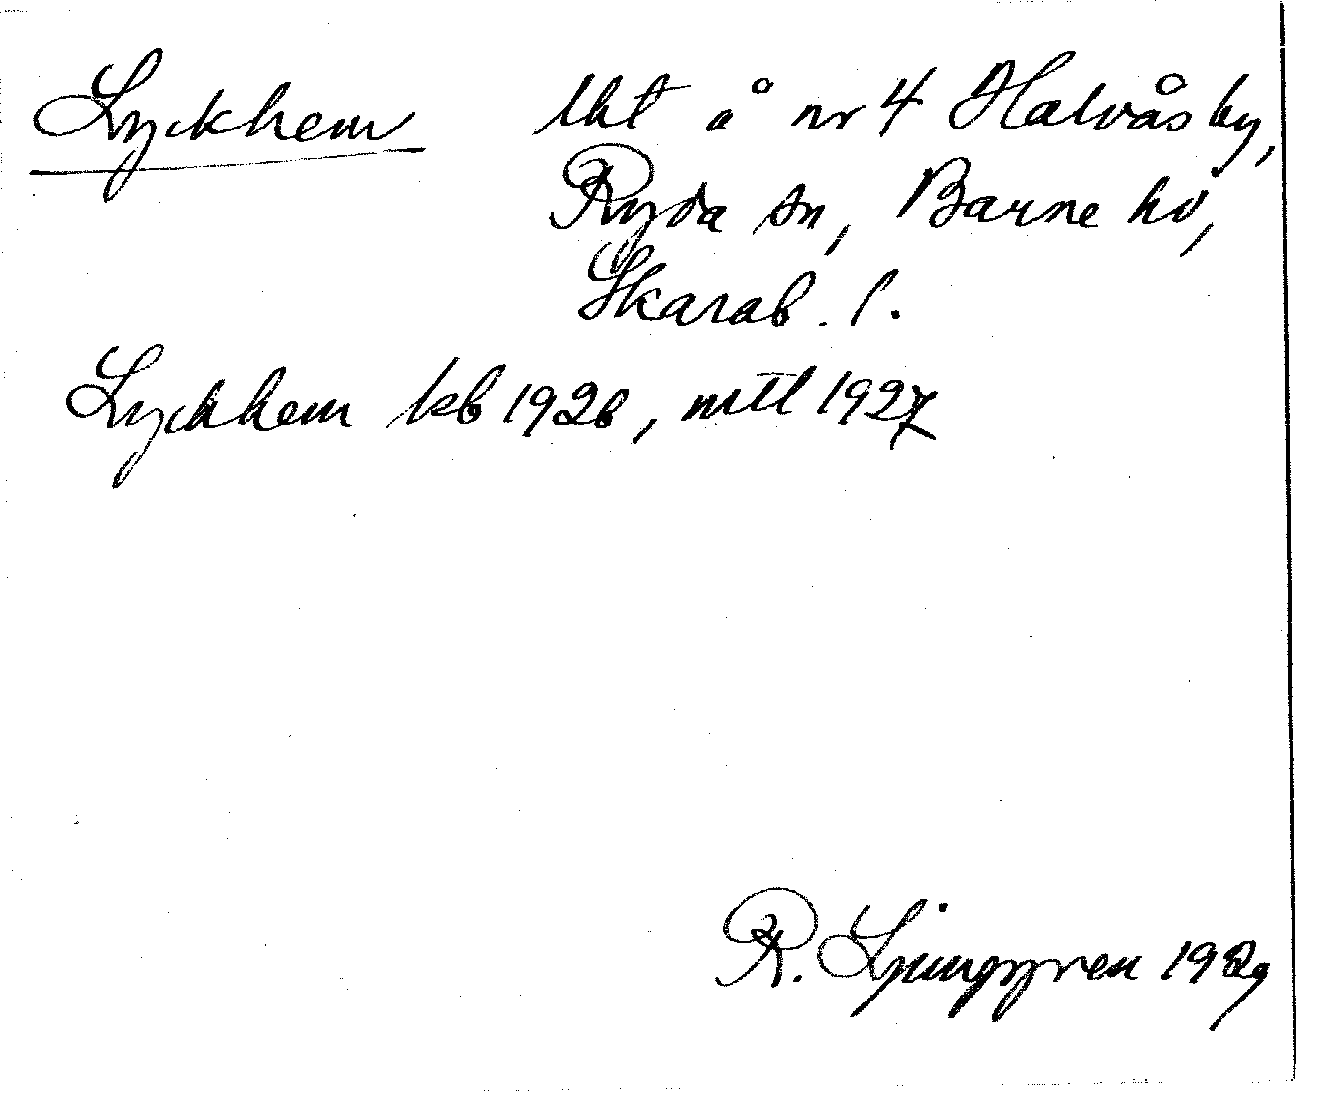 Lyckhem lht å nr 4 Halvås by,
Ryda sn, Barne hd,
Skarab. l.
Lyckhem kb 1926, mtl 1927
R. Ljunggren 1929